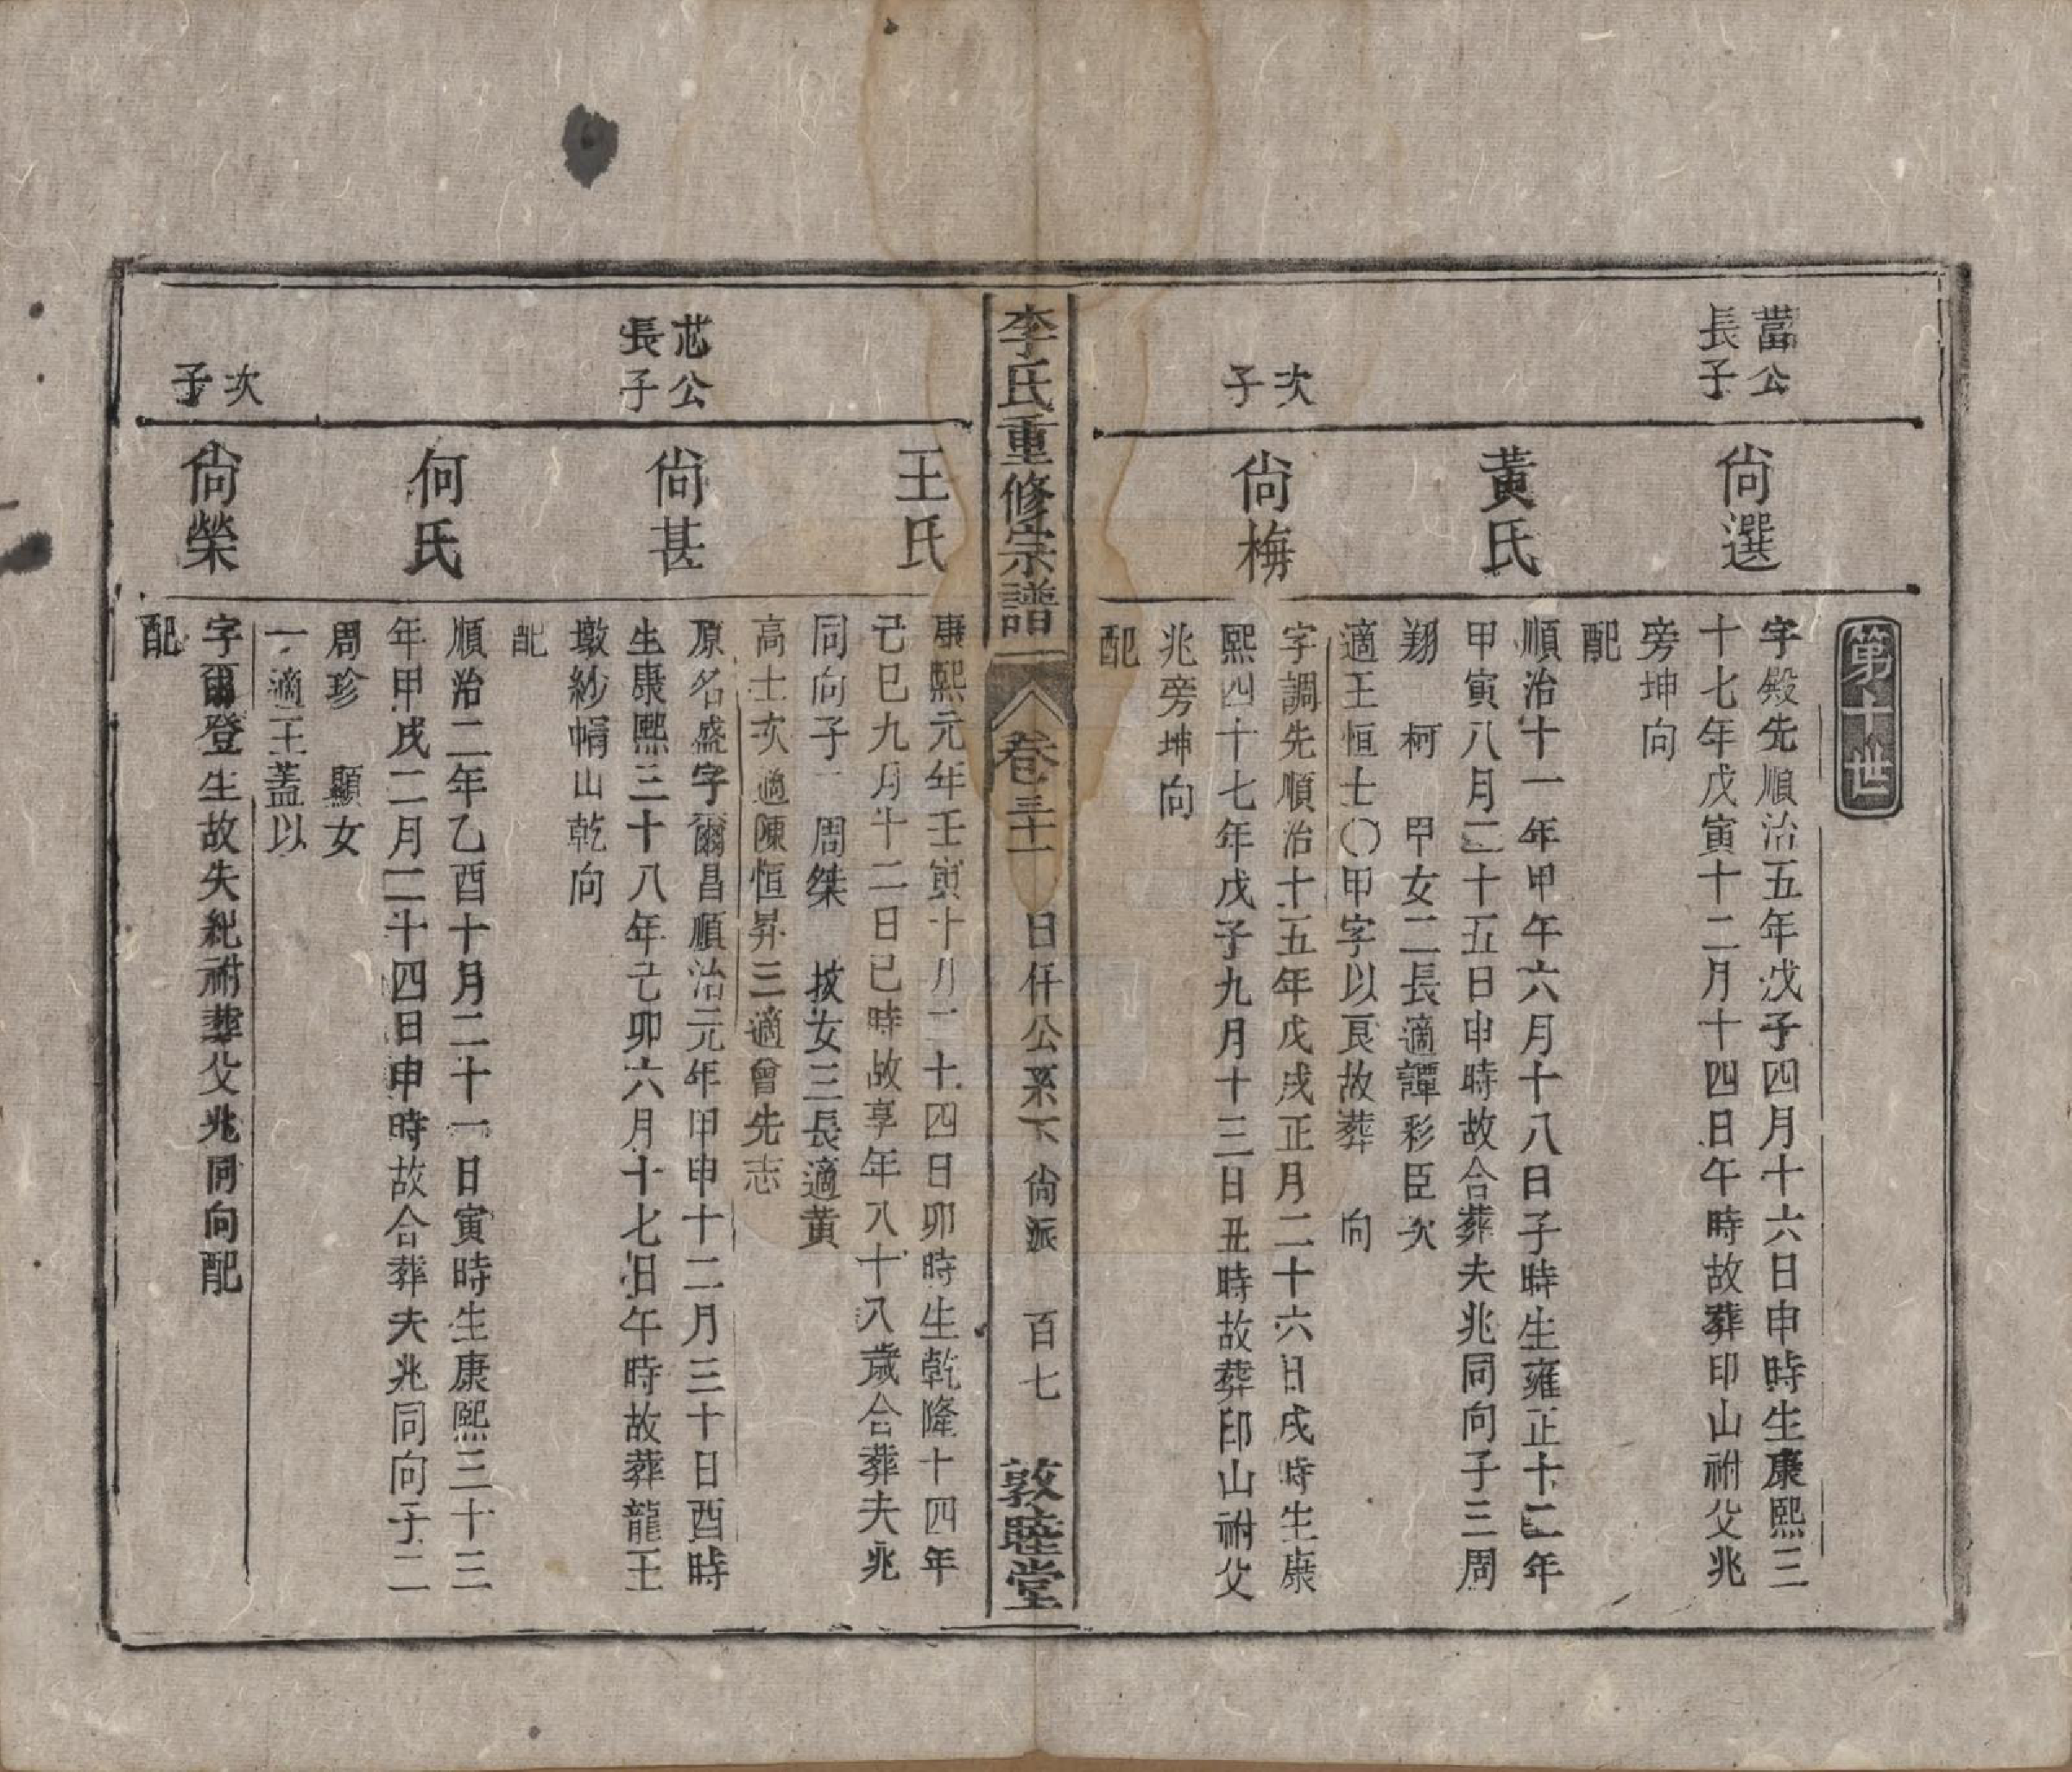 第十世
蒿公
長子
尙選
字殿先順治五年戊子四月十六日申時生康熙三
十七年戊寅十二月十四日午時故葬印山祔父兆
旁坤向
配
黃氏
順治十一年甲午六月十八日子時生雍正十二年
甲寅八月二十五日申時故合葬夫兆同向子三周
翔 柯 甲女二長適譚彩臣次
適王恒士〇甲字以艮故葬 向
次
子
尙梅
字調先順治十五年戊戌正月二十六日戌時生康
熙四十七年戊子九月十三日丑時故葬印山祔父
兆旁坤向
配
李氏重修宗譜
卷三十 日仟公系下尙派 百七 敦睦堂
王氏
康熙元年壬寅十月二十四日卯時生乾隆十四年
己巳九月十二日巳時故享年八十八歲合葬夫兆
同向子二周桀 拔女三長適黃
高士次適陳恒昇三適曾先志
芯公
長子
尙甚
原名盛字爾昌順治元年甲申十二月三十日酉時
生康熙三十八年己卯六月十七日午時故葬龍王
墩紗帽山乾向
配
何氏
順治二年乙酉十月二十一日寅時生康熙三十三
年甲戌二月二十四日申時故合葬夫兆同向子二
周珍 顯女
一適王蓋以
次
子
尙榮
字爾登生故失紀祔葬父兆同向配
配